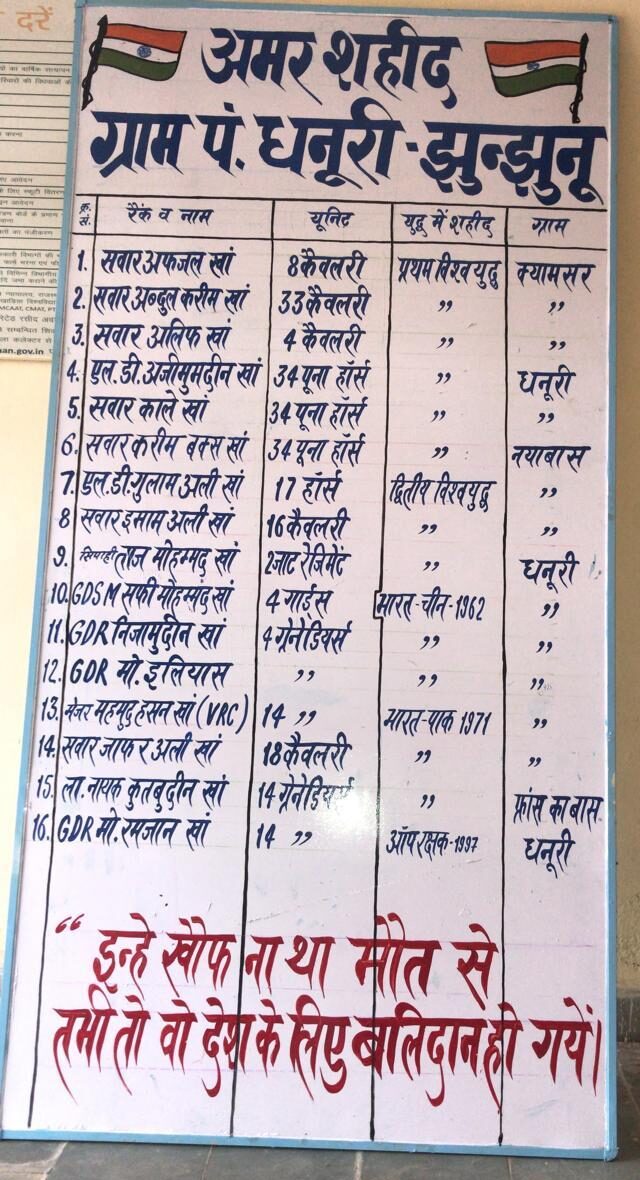 दरें
अमर शहीद
ग्राम पं. धनूरी - झुन्झुनू
क्र. सं. रैंक व नाम यूनिट युद्ध में शहीद ग्राम
1. सवार अफजल खां 8 कैवलरी प्रथम विश्व युद्ध क्यामसर
2. सवार अब्दुल करीम खां 33 कैवलरी ,, ,,
3. सवार अलिफ खां 4 कैवलरी ,, ,,
4. एल.डी. अजीमुमदीन खां 34 पूना हॉर्स ,, धनूरी
5. सवार काले खां 34 पूना हॉर्स ,, ,,
6. सवार करीम बक्स खां 34 पूना हॉर्स ,, नयाबास
7. एल.डी. गुलाम अली खां 17 हॉर्स द्वितीय विश्व युद्ध ,,
8 सवार इमाम अली खां 16 कैवलरी ,, ,,
9. सिपाही ताज मोहम्मद खां 2 जाट रेजिमेंट ,, धनूरी
10. GDSM सफी मोहम्मद खां 4 गार्डस भारत-चीन-1962 ,,
11. GDR निजामुदीन खां 4 ग्रेनेडियर्स ,, ,,
12. GDR मो. इलियास ,, ,, ,,
13. मेजर महमुद हसन खां (VRC) 14 ,, भारत-पाक 1971 ,,
14. सवार जाफर अली खां 18 कैवलरी ,, ,,
15. ला. नायक कुतबुदीन खां 14 ग्रेनेडियर्स ,, फ्रांस का बास
16. GDR मो. रमजान खां 14 ,, ऑप रक्षक-1997 धनूरी
“इन्हे खौफ ना था मौत से
तभी तो वो देश के लिए बलिदान हो गयें।